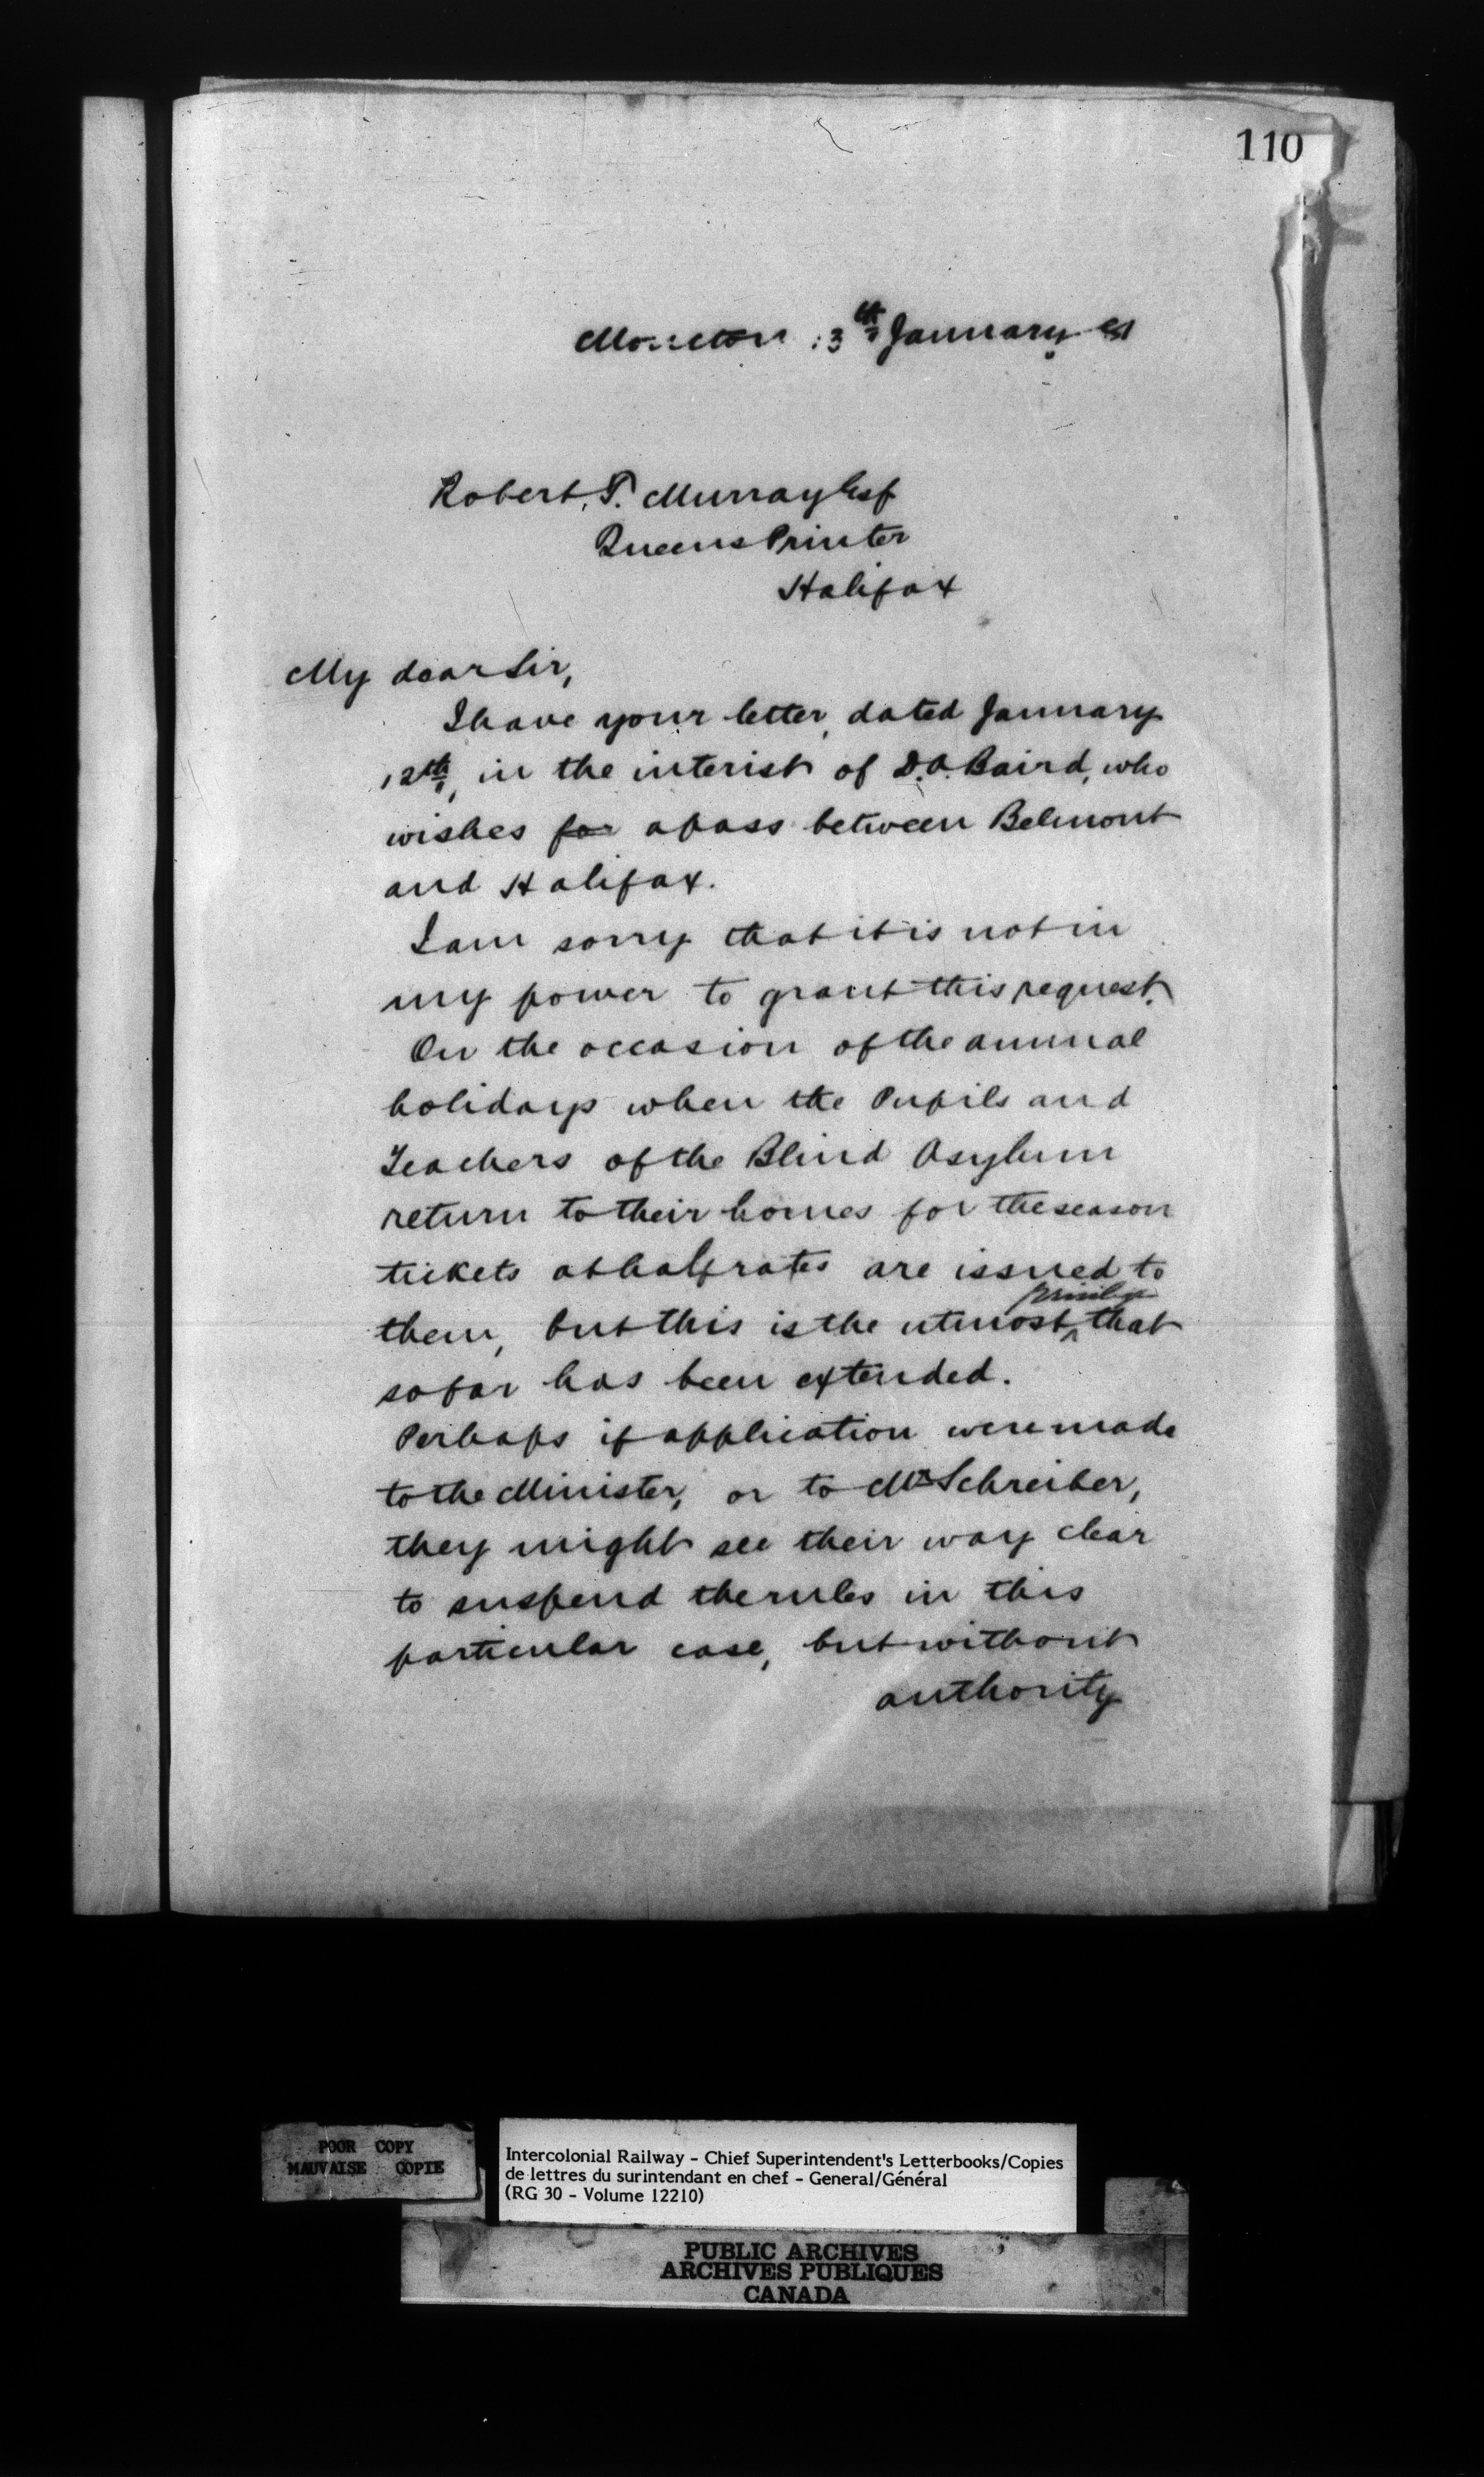 110
Moncton 13th January 91
Robert T. Murray Esq
Queens Printer
Halifax
My dear Sir,
I have your letter, dated January
12th, in the interest of D.A. Baird, who
wishes for a pass between Belmont
and Halifax.
I am sorry that it is not in
my power to grant this request.
On the occasion of the annual
holidays when the Pupils and
Teachers of the Blind Asylum
return to their homes for the season
tickets at half rates are issued to
privilege
them, but this is the utmost ^ that
so far has been extended.
Perhaps if application were made
to the Minister, or to Mr Schreiber,
they might see their way clear
to suspend the rules in this
particular case, but without
authority
POOR COPY
MAUVAISE COPIE
Intercolonial Railway - Chief Superintendent's Letterbooks/Copies
de lettres du surintendant en chef - General/Général
(RG 30 - Volume 12210)
PUBLIC ARCHIVES
ARCHIVES PUBLIQUES
CANADA